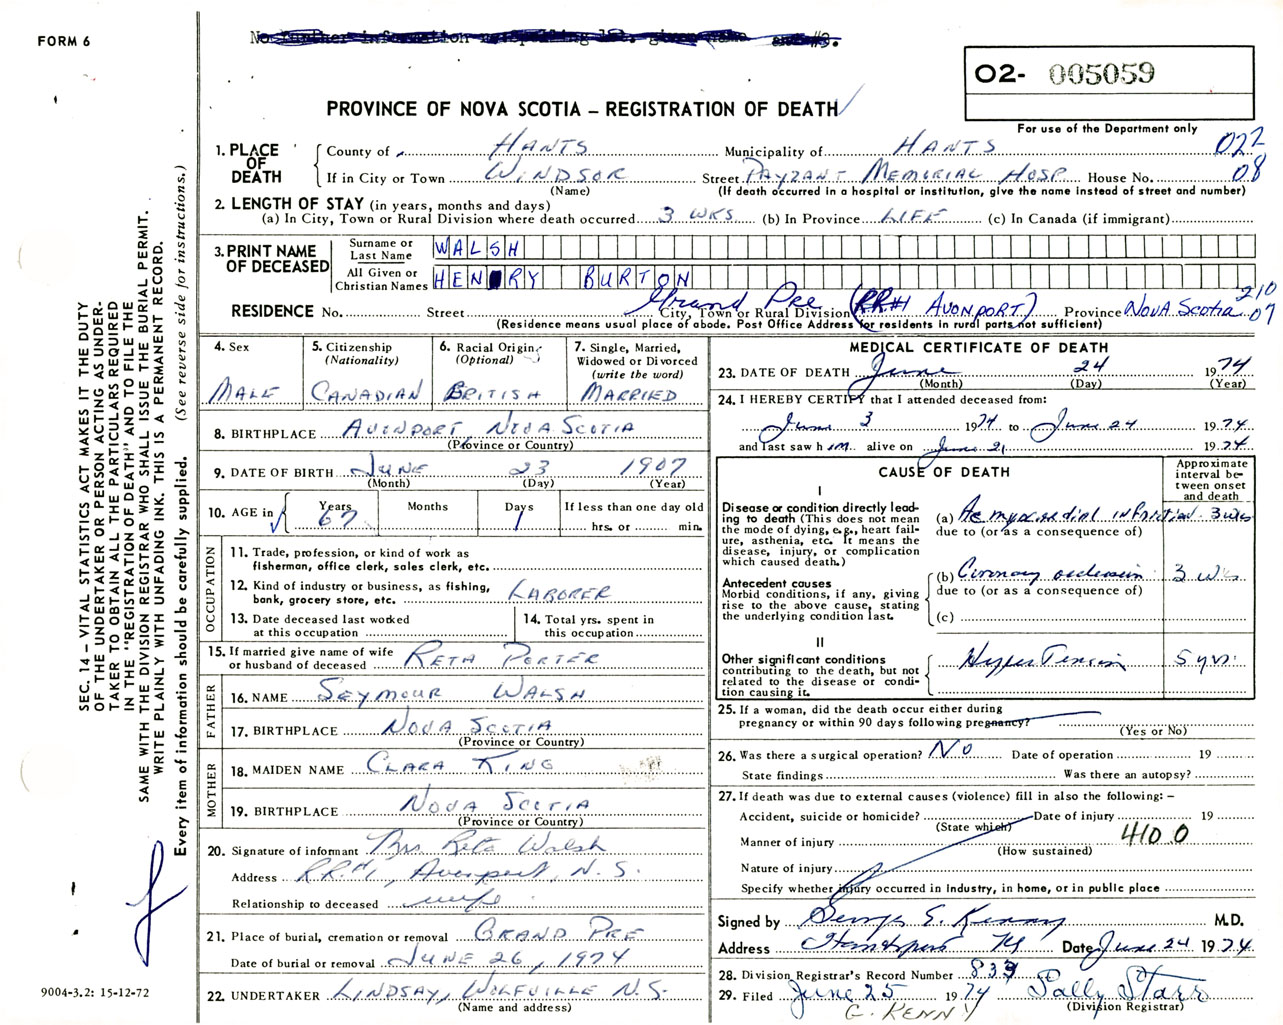 FORM 6
No further information
#3.
O2- 005059
PROVINCE OF NOVA SCOTIA – REGISTRATION OF DEATH
For use of the Department only
1. PLACE OF DEATH
County of HANTS Municipality of HANTS 022
If in City or Town WINDSOR Street PAYZANT MEMORIAL HOSP House No. 08
(Name) (If death occurred in a hospital or institution, give the name instead of street and number)
2. LENGTH OF STAY (in years, months and days)
(a) In City, Town or Rural Division where death occurred 3 WKS (b) In Province LIFE (c) In Canada (if immigrant)
3. PRINT NAME OF DECEASED
Surname or Last Name WALSH
All Given or Christian Names HENRY BURTON
Grand Pre (RR#1 AVONPORT) 210
RESIDENCE No. Street City, Town or Rural Division Province NOVA SCOTIA 07
(Residence means usual place of abode. Post Office Address for residents in rural parts not sufficient)
4. Sex
MALE
5. Citizenship (Nationality)
CANADIAN
6. Racial Origin (Optional)
BRITISH
7. Single, Married, Widowed or Divorced (write the word)
MARRIED
8. BIRTHPLACE AVONPORT NOVA SCOTIA
(Province or Country)
9. DATE OF BIRTH JUNE 23 1907
(Month) (Day) (Year)
10. AGE in Years Months Days If less than one day old
67 1 hrs. or min.
OCCUPATION
11. Trade, profession, or kind of work as fisherman, office clerk, sales clerk, etc.
12. Kind of industry or business, as fishing, bank, grocery store, etc. LABORER
13. Date deceased last worked at this occupation
14. Total yrs. spent in this occupation
15. If married give name of wife or husband of deceased RETA PORTER
FATHER
16. NAME SEYMOUR WALSH
17. BIRTHPLACE NOVA SCOTIA
(Province or Country)
MOTHER
18. MAIDEN NAME CLARA KING
19. BIRTHPLACE NOVA SCOTIA
(Province or Country)
20. Signature of informant Mrs Reta Walsh
Address RR#1, Avonport, N.S.
Relationship to deceased wife
21. Place of burial, cremation or removal GRAND PRE
Date of burial or removal JUNE 26, 1974
22. UNDERTAKER LINDSAY, WOLFVILLE N.S.
(Name and address)
MEDICAL CERTIFICATE OF DEATH
23. DATE OF DEATH June 24 1974
(Month) (Day) (Year)
24. I HEREBY CERTIFY that I attended deceased from:
June 3 1974 to June 24 1974
and last saw him alive on June 21 1974
CAUSE OF DEATH
Approximate interval between onset and death
I
Disease or condition directly leading to death (This does not mean the mode of dying, e.g., heart failure, asthenia, etc. It means the disease, injury, or complication which caused death.)
(a) Ac myocardial infarction 3 wks
due to (or as a consequence of)
Antecedent causes
Morbid conditions, if any, giving rise to the above cause, stating the underlying condition last.
(b) Coronary occlusion 3 wks
due to (or as a consequence of)
(c)
II
Other significant conditions contributing to the death, but not related to the disease or condition causing it.
HyperTension 5 yrs.
25. If a woman, did the death occur either during pregnancy or within 90 days following pregnancy?
(Yes or No)
26. Was there a surgical operation? NO Date of operation 19
State findings Was there an autopsy?
27. If death was due to external causes (violence) fill in also the following: –
Accident, suicide or homicide? Date of injury 19
(State which)
Manner of injury 410.0
(How sustained)
Nature of injury
Specify whether injury occurred in Industry, in home, or in public place
Signed by George E. Kenny M.D.
Address Hantsport NS Date June 24 1974
28. Division Registrar's Record Number 839
29. Filed June 25 1974 Sally Starr
(Division Registrar)
G. KENNY
SEC. 14 – VITAL STATISTICS ACT MAKES IT THE DUTY
OF THE UNDERTAKER OR PERSON ACTING AS UNDER-
TAKER TO OBTAIN ALL THE PARTICULARS REQUIRED
IN THE "REGISTRATION OF DEATH" AND TO FILE THE
SAME WITH THE DIVISION REGISTRAR WHO SHALL ISSUE THE BURIAL PERMIT.
WRITE PLAINLY WITH UNFADING INK. THIS IS A PERMANENT RECORD.
Every item of information should be carefully supplied. (See reverse side for instructions.)
9004-3.2: 15-12-72